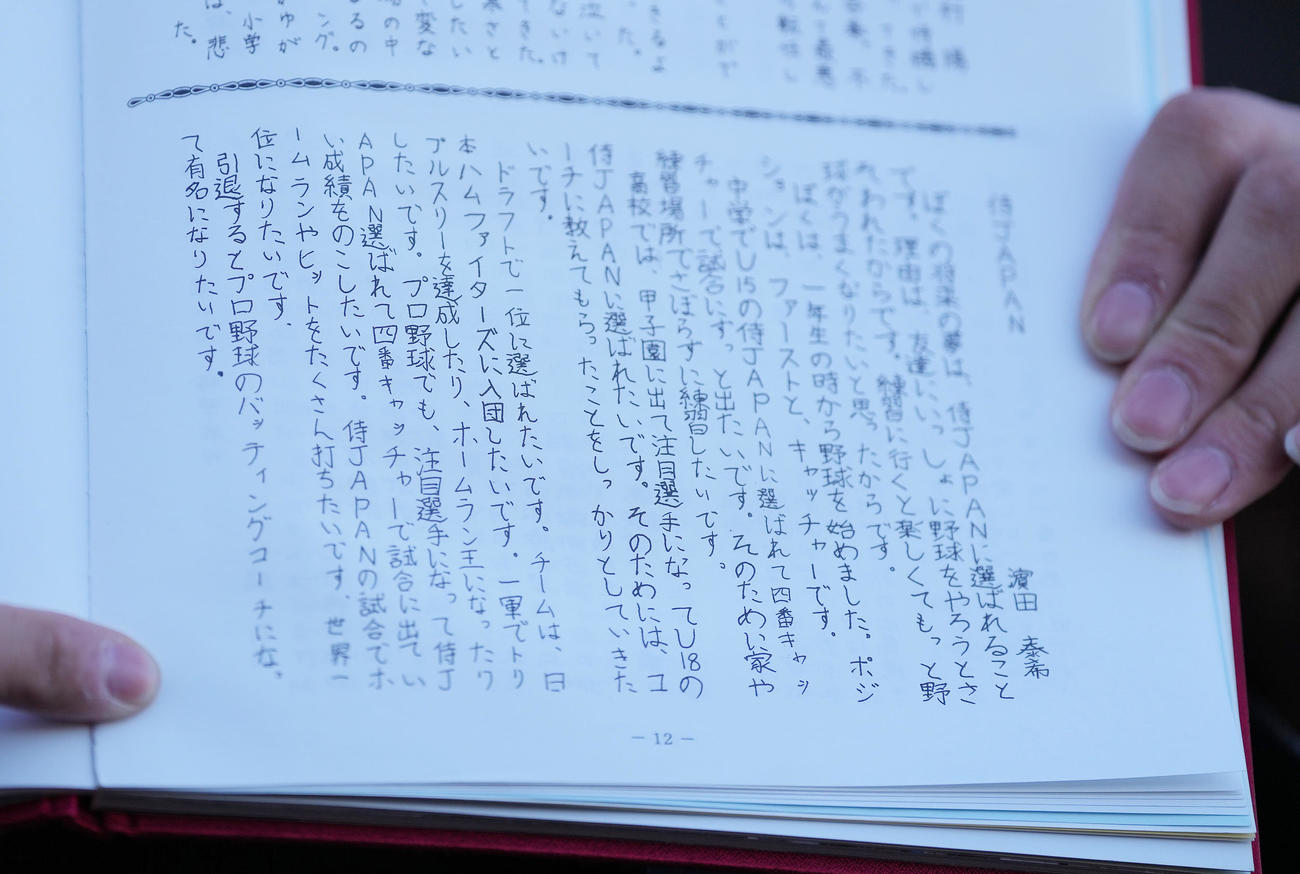 きるよ
た。
泣いて
ないけ
てきた。
寒さと
したい
変な
の中
るの
ング。
ゆが
小学
は、悲
た。
侍JAPAN
濵田 泰希
ぼくの将来の夢は、侍JAPANに選ばれること
です。理由は、友達にいっしょに野球をやろうとさ
れわれたからです。練習に行くと楽しくてもっと野
球がうまくなりたいと思ったからです。
ぼくは、一年生の時から野球を始めました。ポジ
ションは、ファーストと、キャッチャーです。
中学でU15の侍JAPANに選ばれて四番キャッ
チャーで試合にずっと出たいです。そのためい家や
練習場所でさぼらずに練習したいです。
高校では、甲子園に出て注目選手になってU18の
侍JAPANに選ばれたいです。そのためには、コ
ーチに教えてもらったことをしっかりとしていきた
いです。
ドラフトで一位に選ばれたいです。チームは、日
本ハムファイターズに入団したいです。一軍でトリ
プルスリーを達成したり、ホームラン王になったり
したいです。プロ野球でも、注目選手になって侍J
APAN選ばれて四番キャッチャーで試合に出てい
い成績をのこしたいです。侍JAPANの試合でホ
ームランやヒットをたくさん打ちたいです。世界一
位になりたいです。
引退するとプロ野球のバッティングコーチになっ
て有名になりたいです。
— 12 —